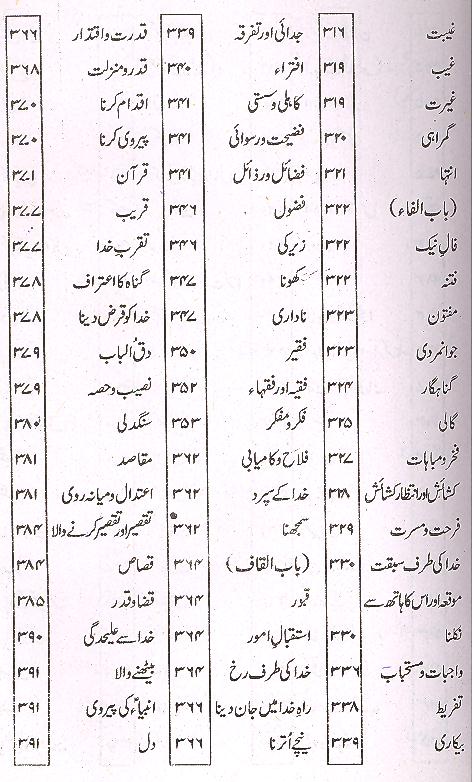 غیبت ۳۱۶
غیب ۳۱۹
غیرت ۳۱۹
گمراہی ۳۲۰
انتہا ۳۲۱
(باب الفاء) ۳۲۲
فالِ نیک ۳۲۲
فتنہ ۳۲۲
مفتون ۳۲۳
جوانمردی ۳۲۳
گناہگار ۳۲۴
گالی ۳۲۵
فخر و مباہات ۳۲۷
کشائش اور انتظار کشائش ۳۲۸
فرحت و مسرت ۳۲۹
خدا کی طرف سبقت ۳۳۰
موقعہ اور اس کا ہاتھ سے
نکلنا ۳۳۰
واجبات و مستحبات ۳۳۶
تفریط ۳۳۸
بیکاری ۳۳۹
جدائی اور تفرقہ ۳۳۹
افتراء ۳۴۰
کاہلی و سستی ۳۴۱
فضیحت و رسوائی ۳۴۱
فضائل و رذائل ۳۴۱
فضول ۳۴۶
زیرکی ۳۴۶
کھونا ۳۴۷
ناداری ۳۴۷
فقیر ۳۵۰
فقیہ اور فقہاء ۳۵۲
فکر و مفکر ۳۵۳
فلاح و کامیابی ۳۶۲
خدا کے سپرد ۳۶۲
سمجھنا ۳۶۲
(باب القاف) ۳۶۴
قبور ۳۶۴
استقبالِ امور ۳۶۴
خدا کی طرف رخ ۳۶۴
راہِ خدا میں جان دینا ۳۶۶
نیچے اُترنا ۳۶۶
قدرت و اقتدار ۳۶۶
قدر و منزلت ۳۶۸
اقدام کرنا ۳۷۰
پیروی کرنا ۳۷۰
قرآن ۳۷۱
قریب ۳۷۷
تقربِ خدا ۳۷۷
گناہ کا اعتراف ۳۷۸
خدا کو قرض دینا ۳۷۸
دق الباب ۳۷۹
نصیب و حصہ ۳۷۹
سنگدلی ۳۸۰
مقاصد ۳۸۱
اعتدال و میانہ روی ۳۸۱
تقصیر اور تقصیر کرنے والا ۳۸۴
قصاص ۳۸۴
قضا و قدر ۳۸۵
خدا سے علیحدگی ۳۹۰
بیٹھنے والا ۳۹۱
انبیاءؑ کی پیروی ۳۹۱
دل ۳۹۱